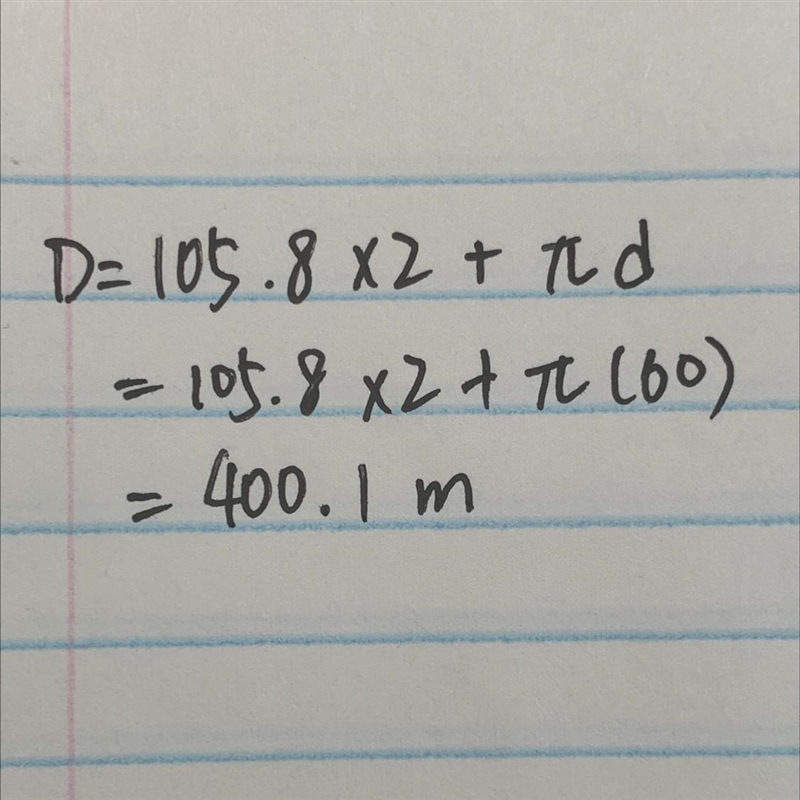 D=105.8 ×2 + π d
= 105.8 ×2 + π (60)
= 400.1 m